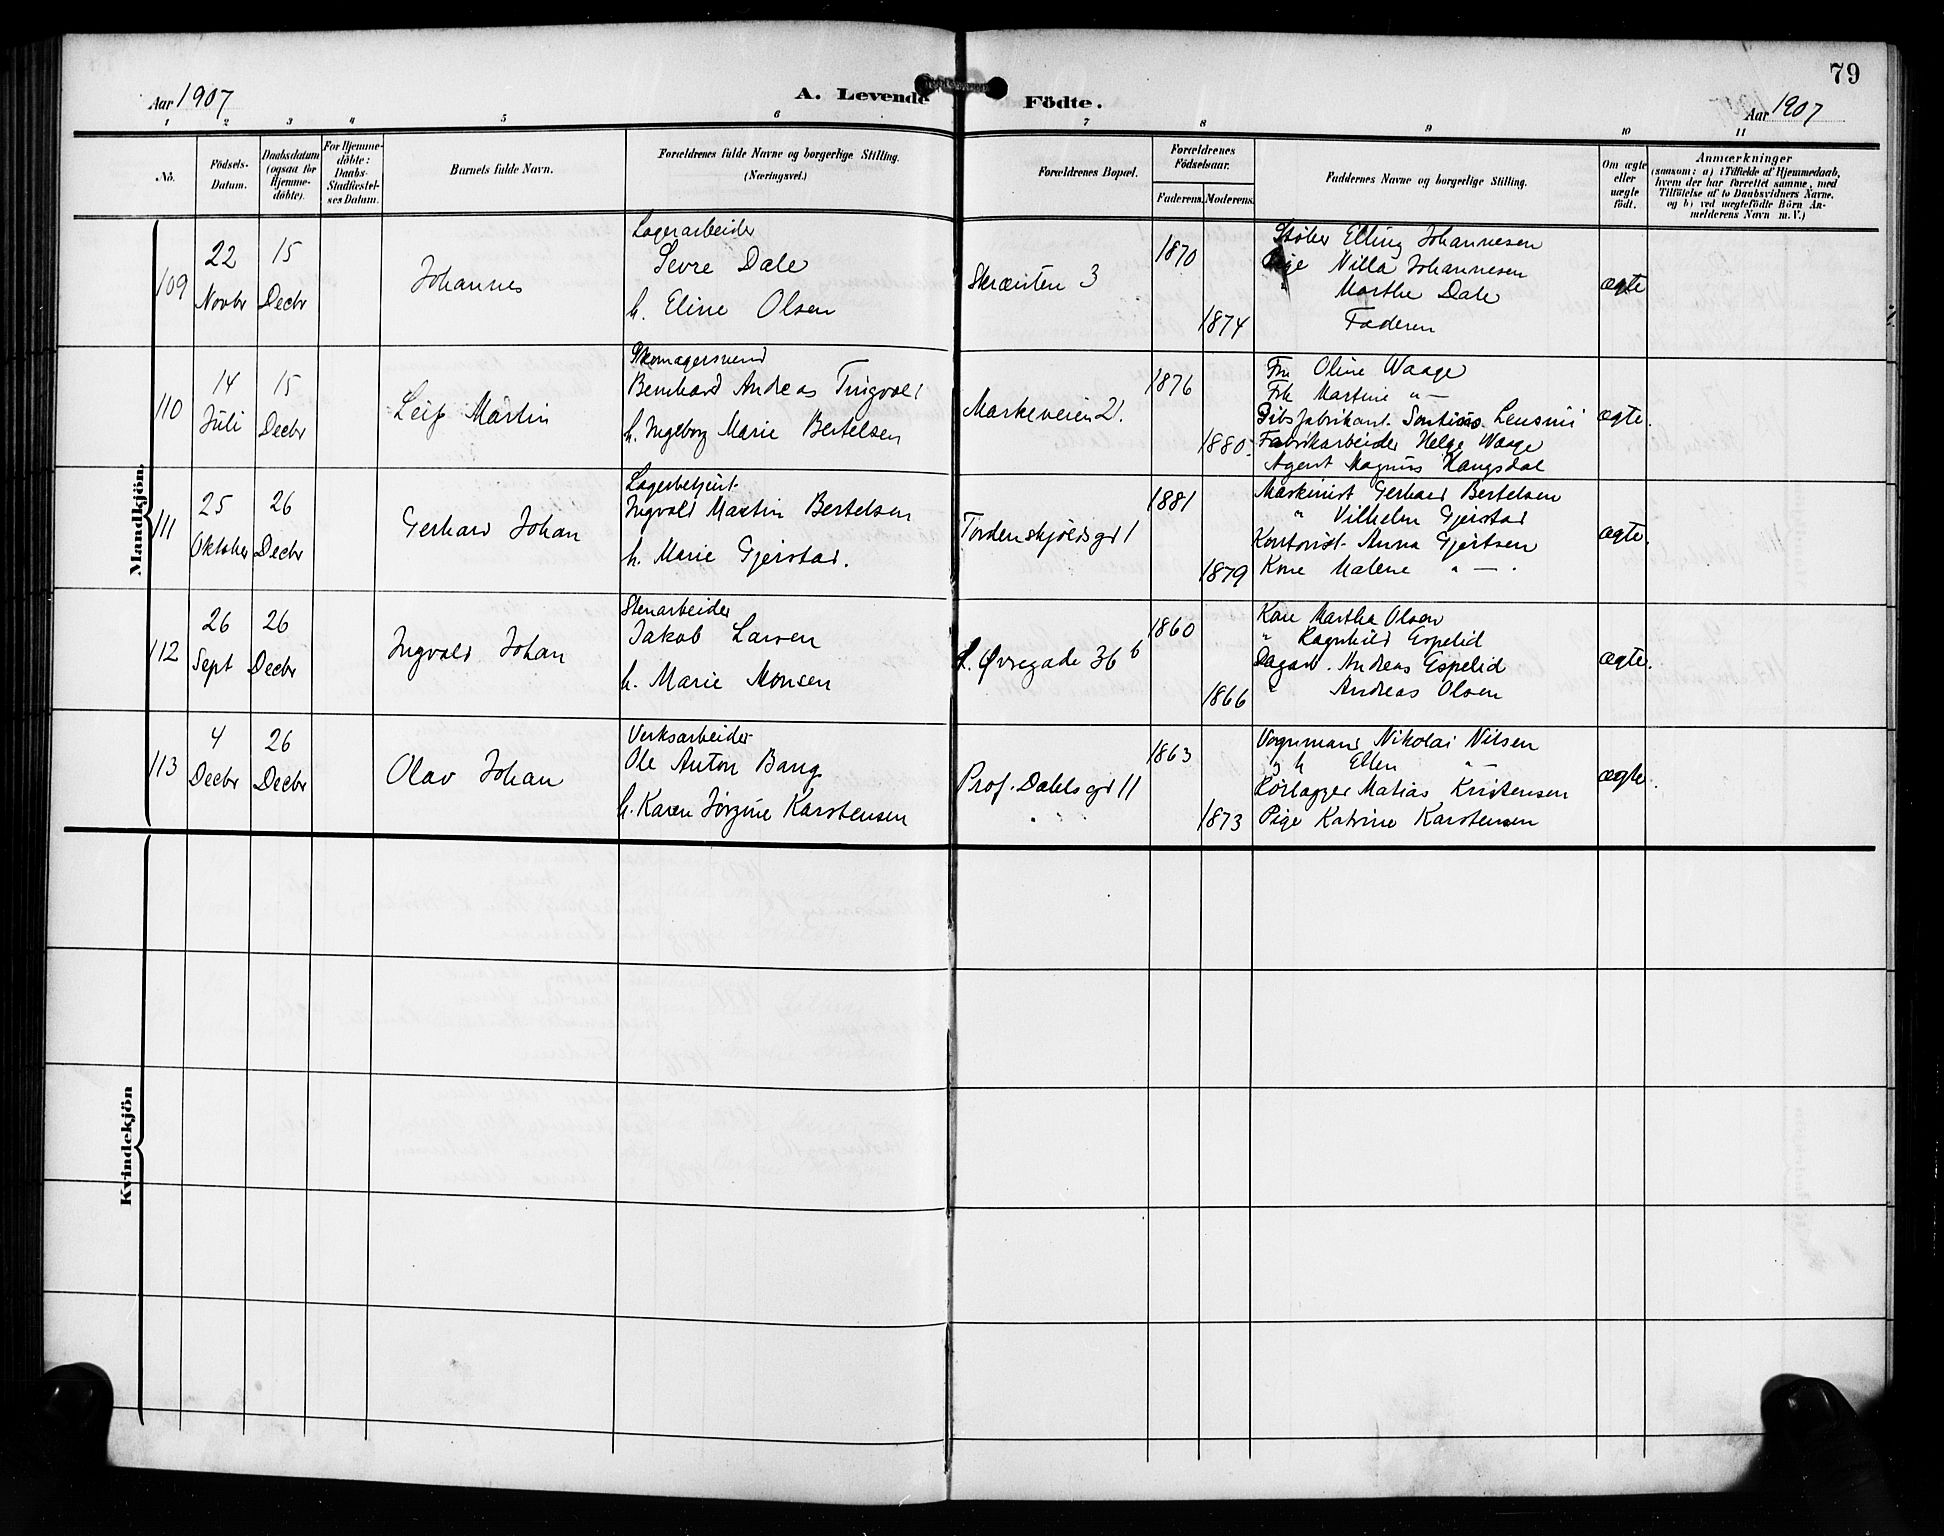 79
Aar 1907
A. Levende Födte.
Aar 1907
1 2 3 4 5 6 7 8 9 10 11
No.
Födsels-
Datum.
Daabsdatum
(ogsaa for
Hjemme-
döbte).
For Hjemme-
döbte:
Daabs-
Stadfæstel-
ses Datum.
Barnets fulde Navn.
Forældrenes fulde Navne og borgerlige Stilling.
(Næringsvei.)
Forældrenes Bopæl.
Forældrenes
Födselsaar.
Faderens. Moderens.
Faddernes Navne og borgerlige Stilling.
Om ægte
eller
uægte
født.
Anmærkninger
(saasom: a) i Tilfælde af Hjemmedaab,
hvem der har forrettet samme, med
Tilföielse af to Daabsvidners Navne.
og b) ved uægtefödte Börn An-
melderens Navn m. V.)
Mandkjön.
109
22
Novbr
15
Decbr
Johannes
Lagerarbeider
Sevre Dale
h. Eline Olsen
Skrænten 3
1870
1874
Støber Elling Johannesen
Pige Nilla Johannesen
" Marthe Dale
Faderen
ægte
110
14
Juli
15
Decbr
Leif Martin
Skomagersvend
Bernhard Andreas Tingvold
h. Ingeborg Marie Bertelsen
Markeveien 21.
1876
1880.
Fru Oline Waage
Frk Martine " —
Gibsfabrikant
Fabrikarbeider Helge Waage
Agent Magnus Haugsdal
ægte.
111
25
Oktober
26
Decbr
Gerhard Johan
Lagerbetjent
Ingvald Martin Bertelsen
h. Marie Gjerstad.
Tordenskjoldsgd 1
1881
1879
Maskinist Gerhard Bertelsen
" Vilhelm Gjerstad
Kontorist Anna Gjertsen
Kone Malene " — .
ægte.
112
26
Sept
26
Decbr
Ingvald Johan
Stenarbeider
Jakob Larsen
h. Marie Monsen
Øvregade 36 b
1860
1866
Kone Martha Olsen
" Ragnhild Espelid
Dagarb. Andreas Espelid
" Andreas Olsen
ægte.
113
4
Decbr
26
Decbr
Olav Johan
Verksarbeider
Ole Anton Bang
h. Karen Jørgine Karstensen
Prof. Dahlsgd 11
1863
1873
Vognmand Nikolai Nilsen
" h Ellen " —
Rørlægger Matias Kristensen
Pige Katrine Karstensen
ægte.
Kvindekjön